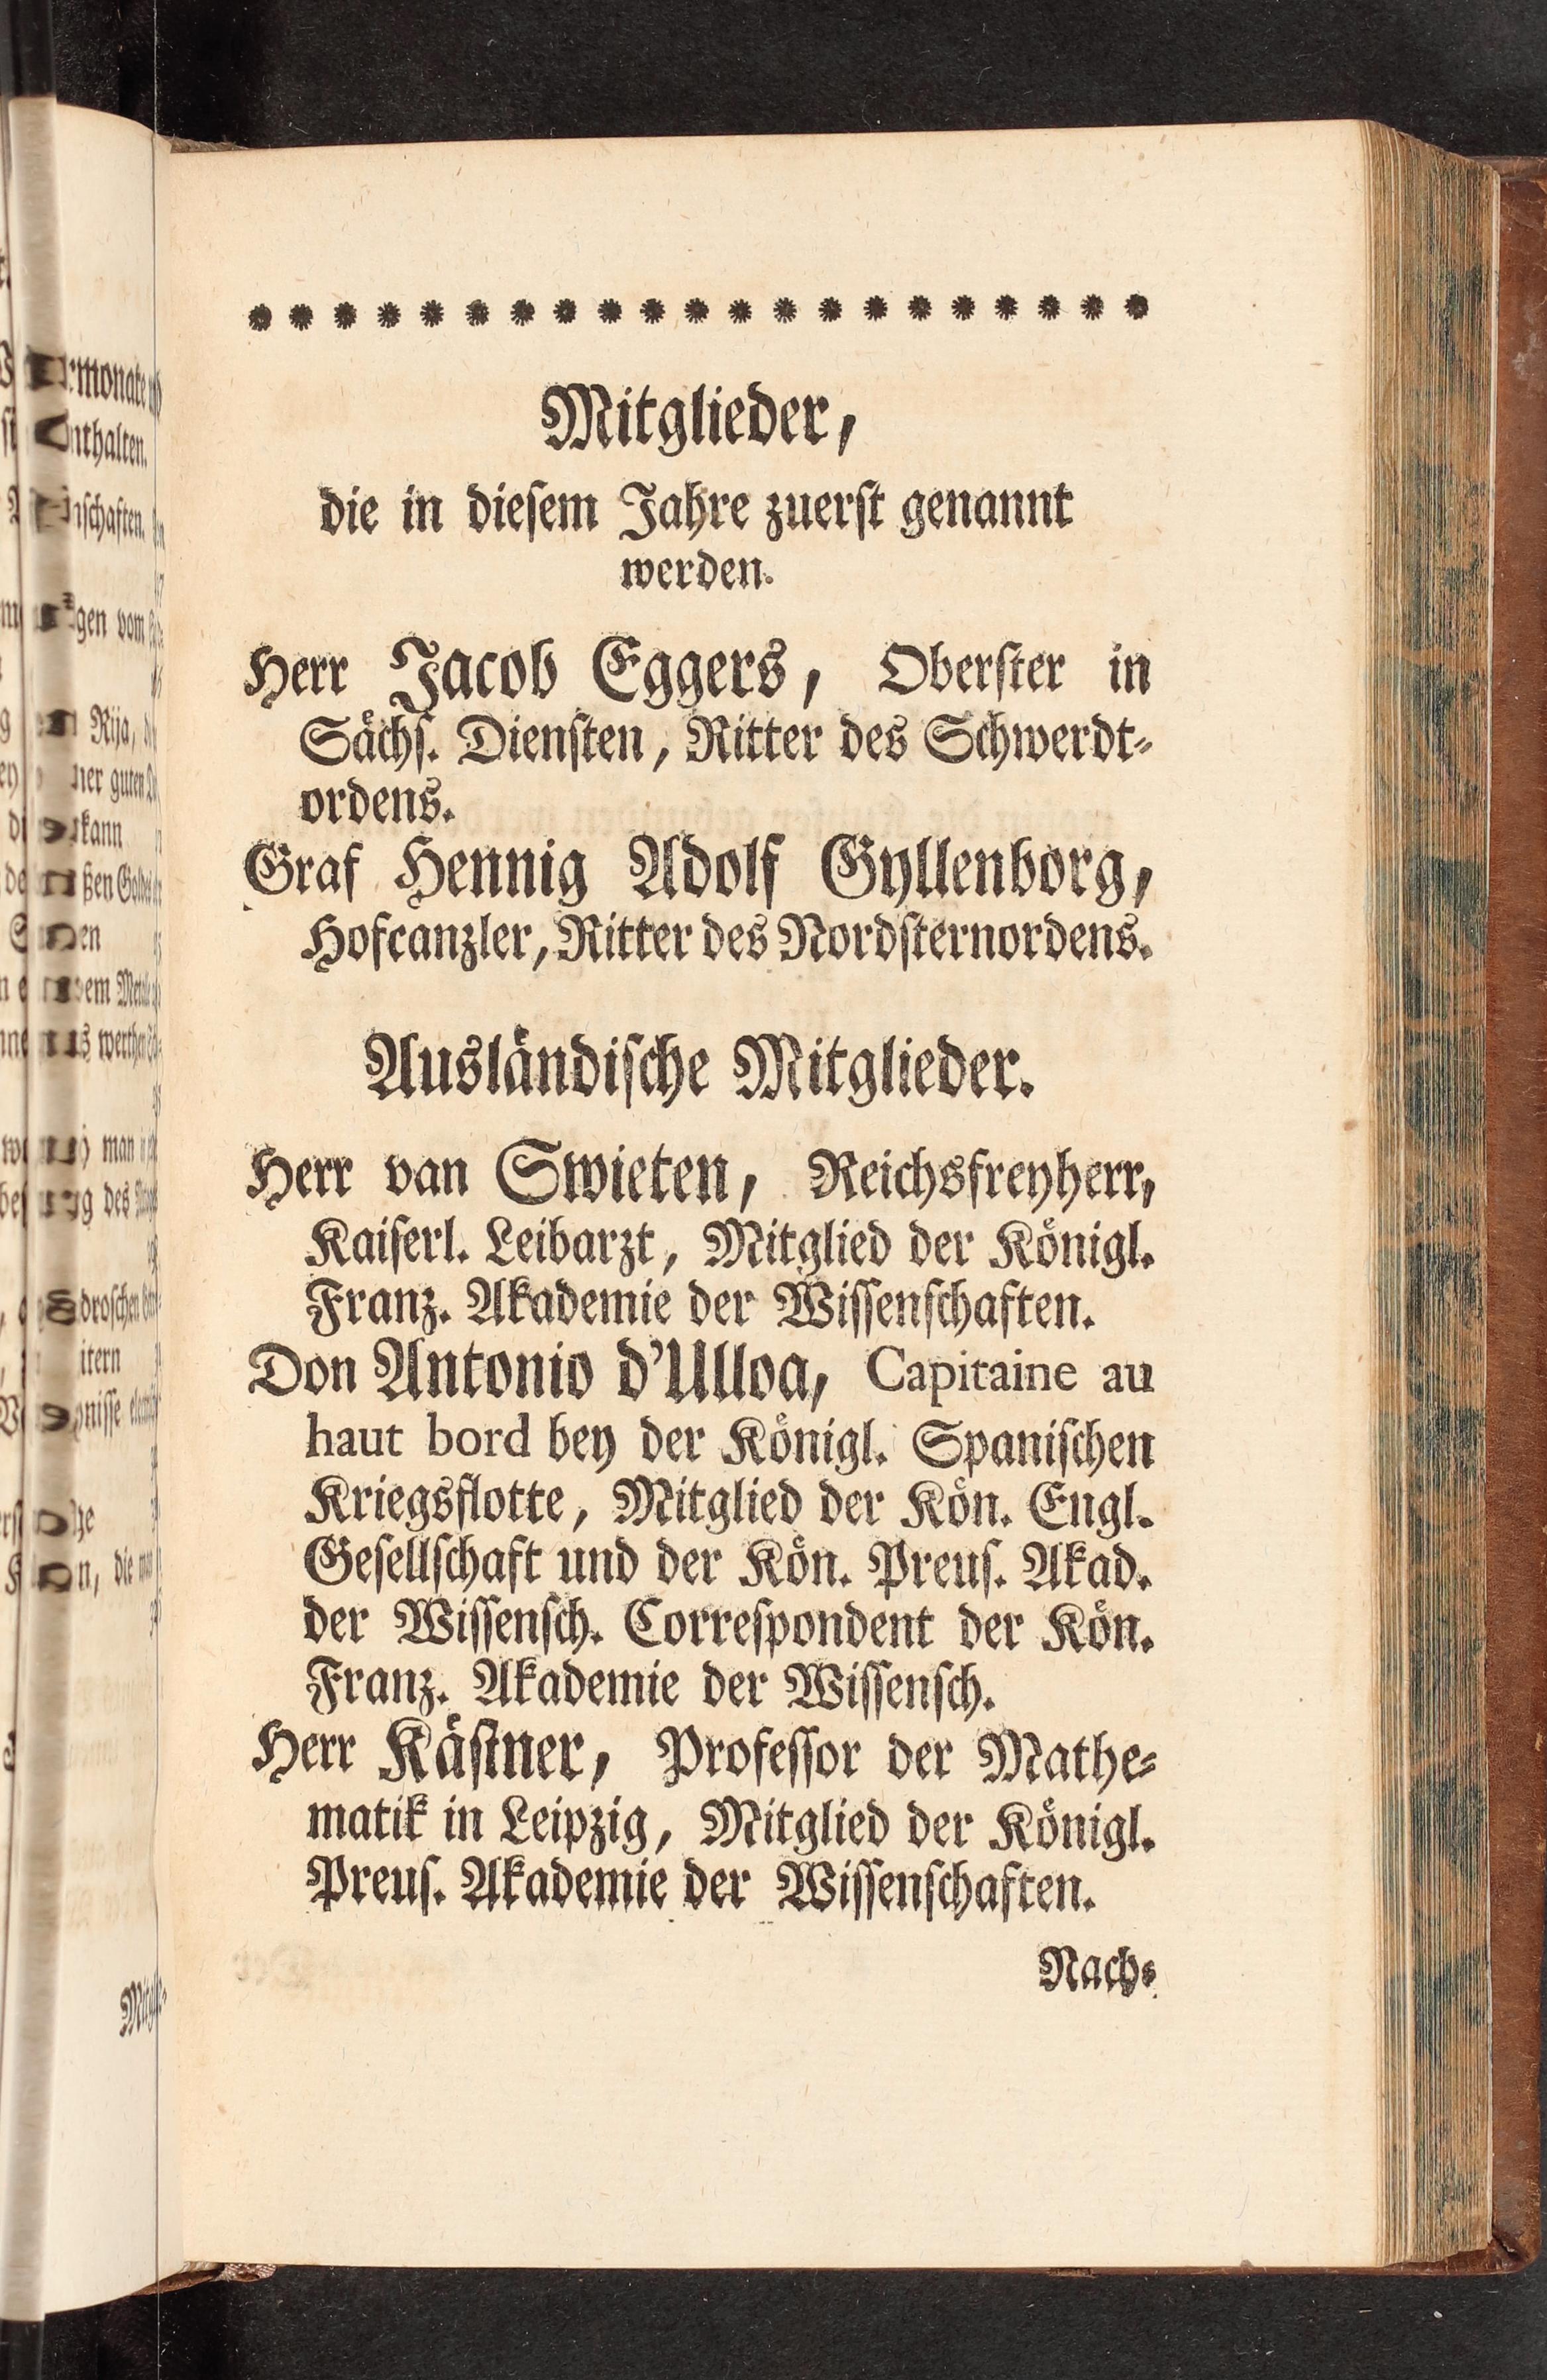 Mitglieder,
die in dieſem Jahre zuerſt genannt
werden.
Herr Jacob Eggers, Oberſter in
Sächſ. Dienſten, Ritter des Schwerdt-
ordens.
Graf Hennig Adolf Gyllenborg,
Hofcanzler, Ritter des Nordſternordens.
Ausländiſche Mitglieder.
Herr van Swieten, Reichsfreyherr,
Kaiſerl. Leibarzt, Mitglied der Königl.
Franz. Akademie der Wiſſenſchaften.
Don Antonio d'Ulloa, Capitaine au
haut bord bey der Königl. Spaniſchen
Kriegsflotte, Mitglied der Kön. Engl.
Geſellſchaft und der Kön. Preuſ. Akad.
der Wiſſenſch. Correſpondent der Kön.
Franz. Akademie der Wiſſenſch.
Herr Käſtner, Profeſſor der Mathe-
matik in Leipzig, Mitglied der Königl.
Preuſ. Akademie der Wiſſenſchaften.
Nach-